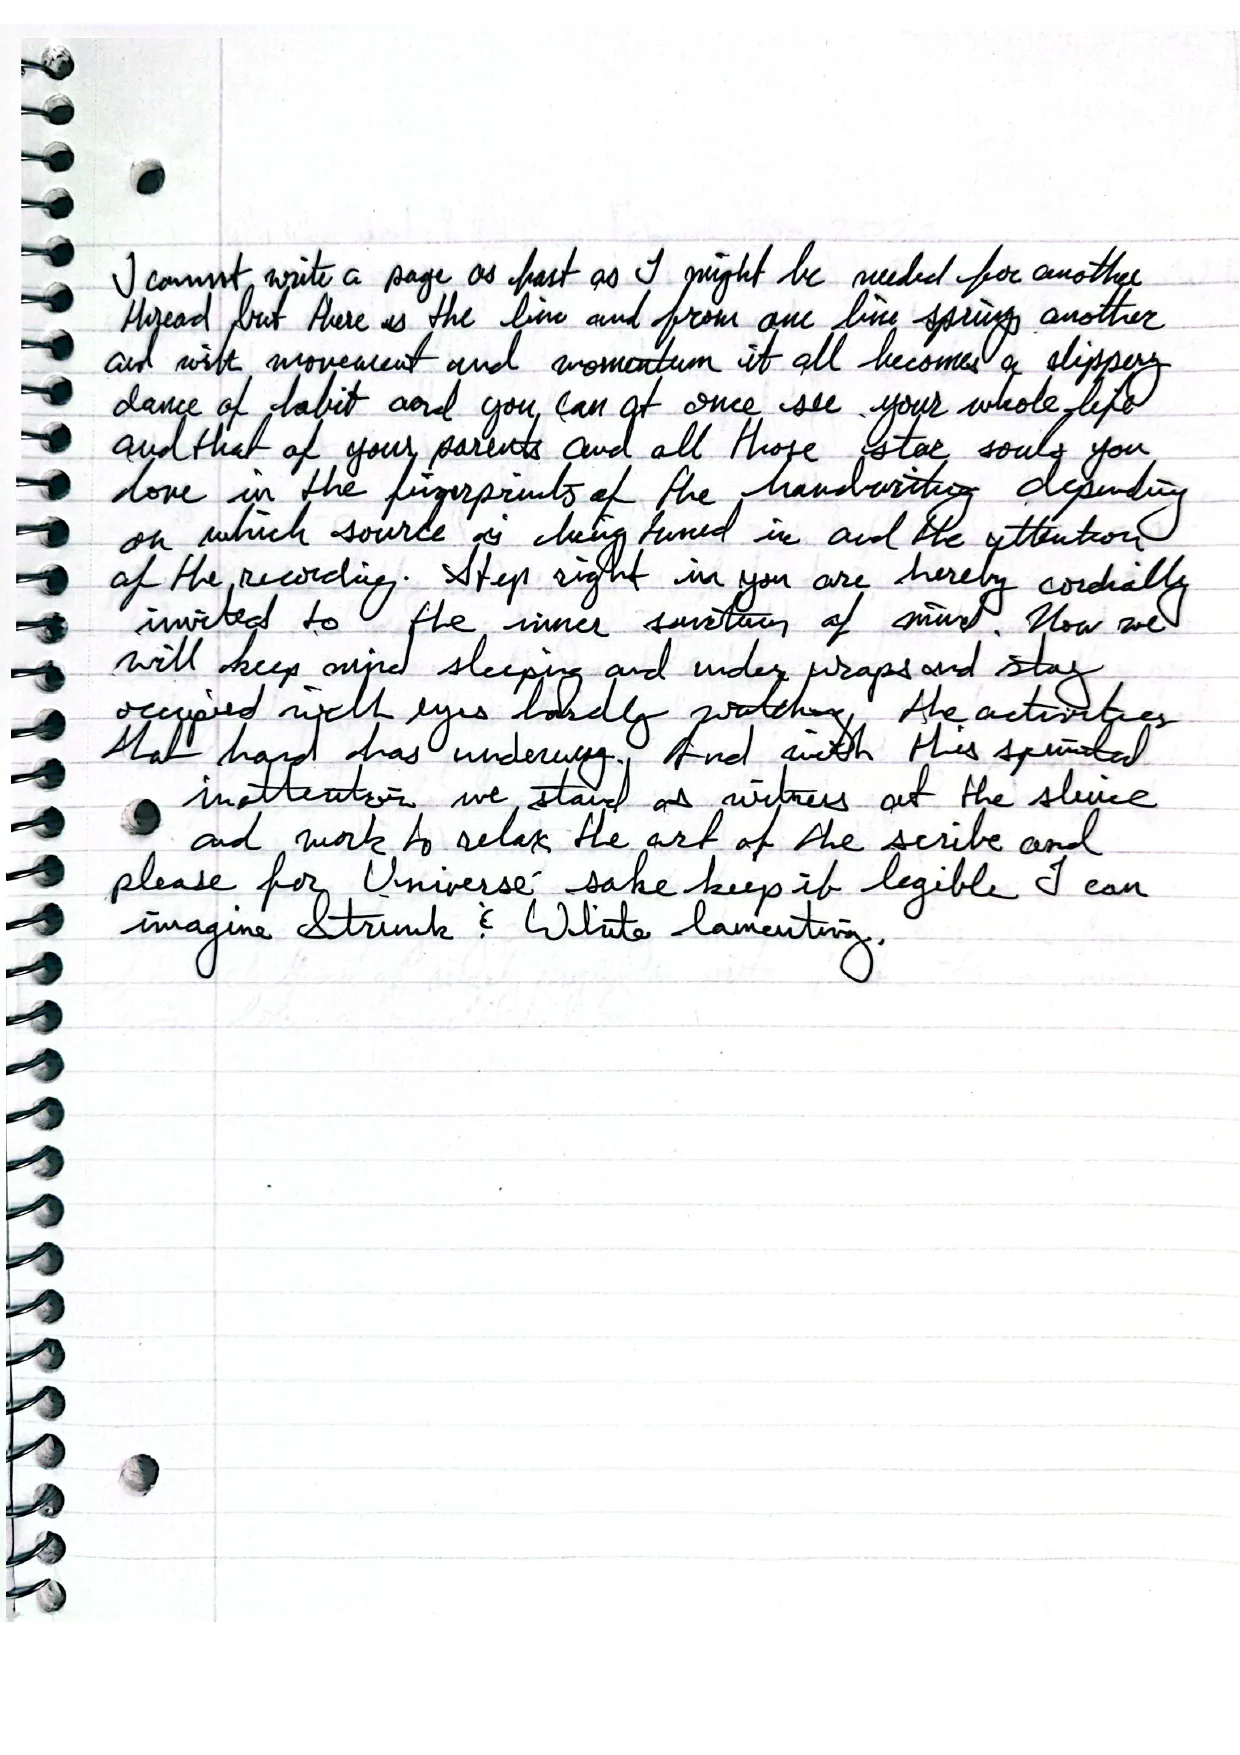 I cannot write a page as fast as I might be needed for another
thread but there is the line and from one line springs another
and with movement and momentum it all becomes a slippery
dance of habit and you can at once see your whole life
and that of your parents and all those star souls you
love in the fingerprints of the handwriting depending
on which source is being tuned in and the attention
of the recording. Step right in you are hereby cordially
invited to the inner sanctum of mind. Now we
will keep mind sleeping and under wraps and stay
occupied with eyes hardly watching the activities
that hand has underway. And with this
inattention we stand as witness at the sluice
and work to relax the art of the scribe and
please for Universe' sake keep it legible I can
imagine Strunk & White lamenting.